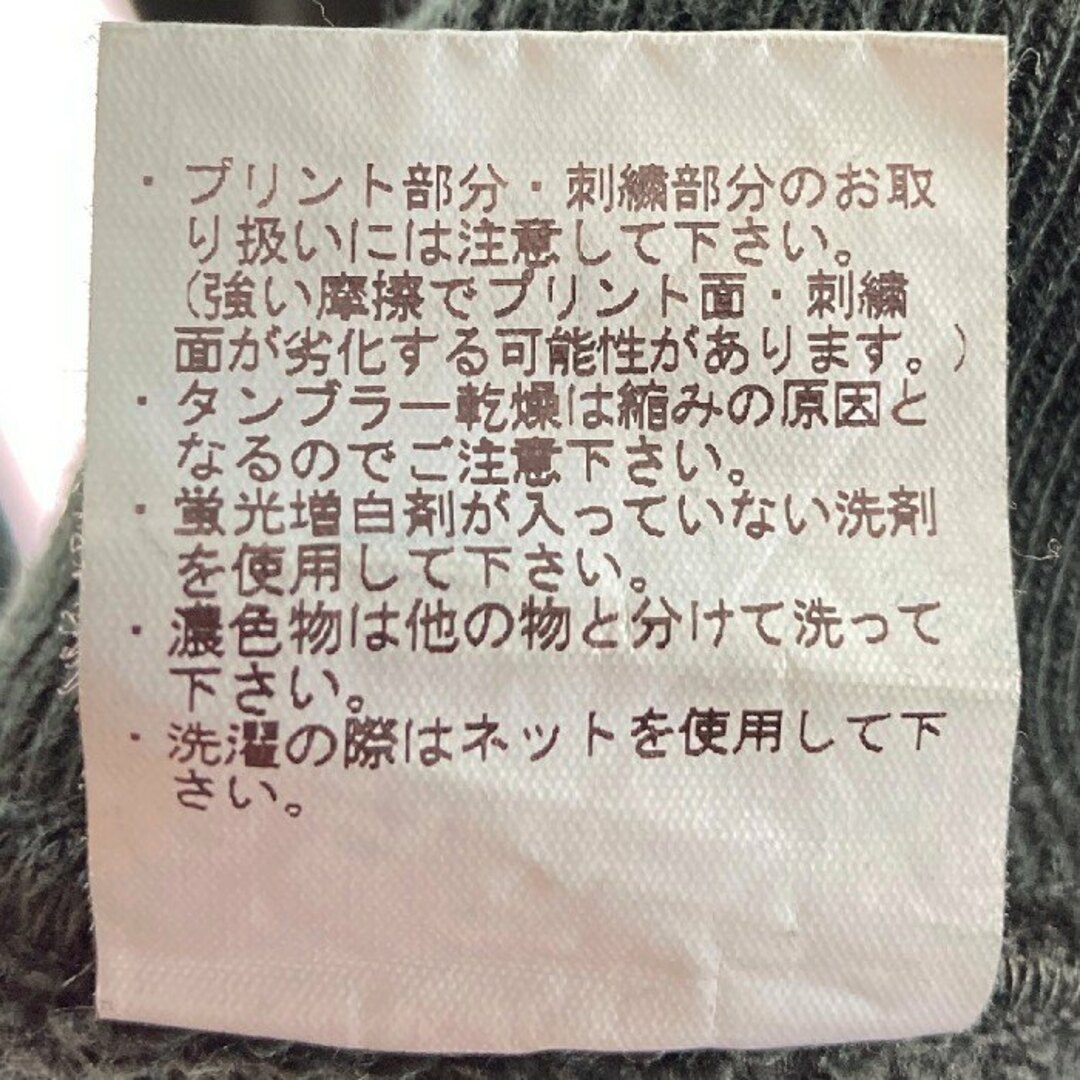 ・プリント部分・刺繍部分のお取
り扱いには注意して下さい。
(強い摩擦でプリント面・刺繍
面が劣化する可能性があります。)
・タンブラー乾燥は縮みの原因と
なるのでご注意下さい。
・蛍光増白剤が入っていない洗剤
を使用して下さい。
・濃色物は他の物と分けて洗って
下さい。
・洗濯の際はネットを使用して下
さい。